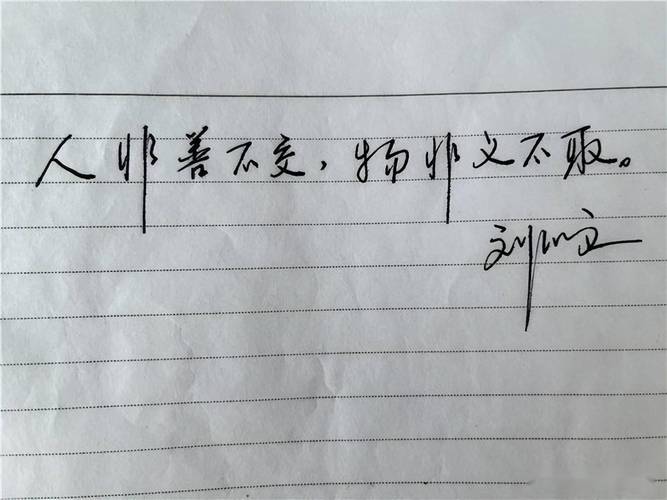 人非善不交,物非义不取。
刘